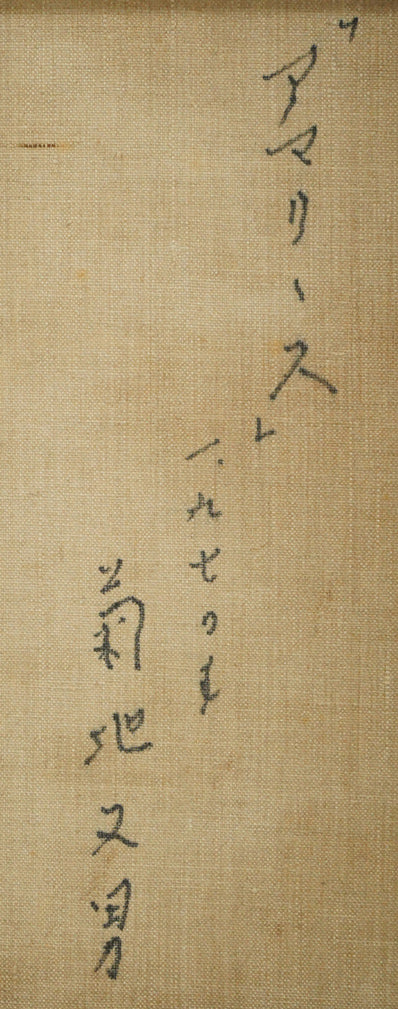 「アマリヽス」
一九七〇年
菊地又男